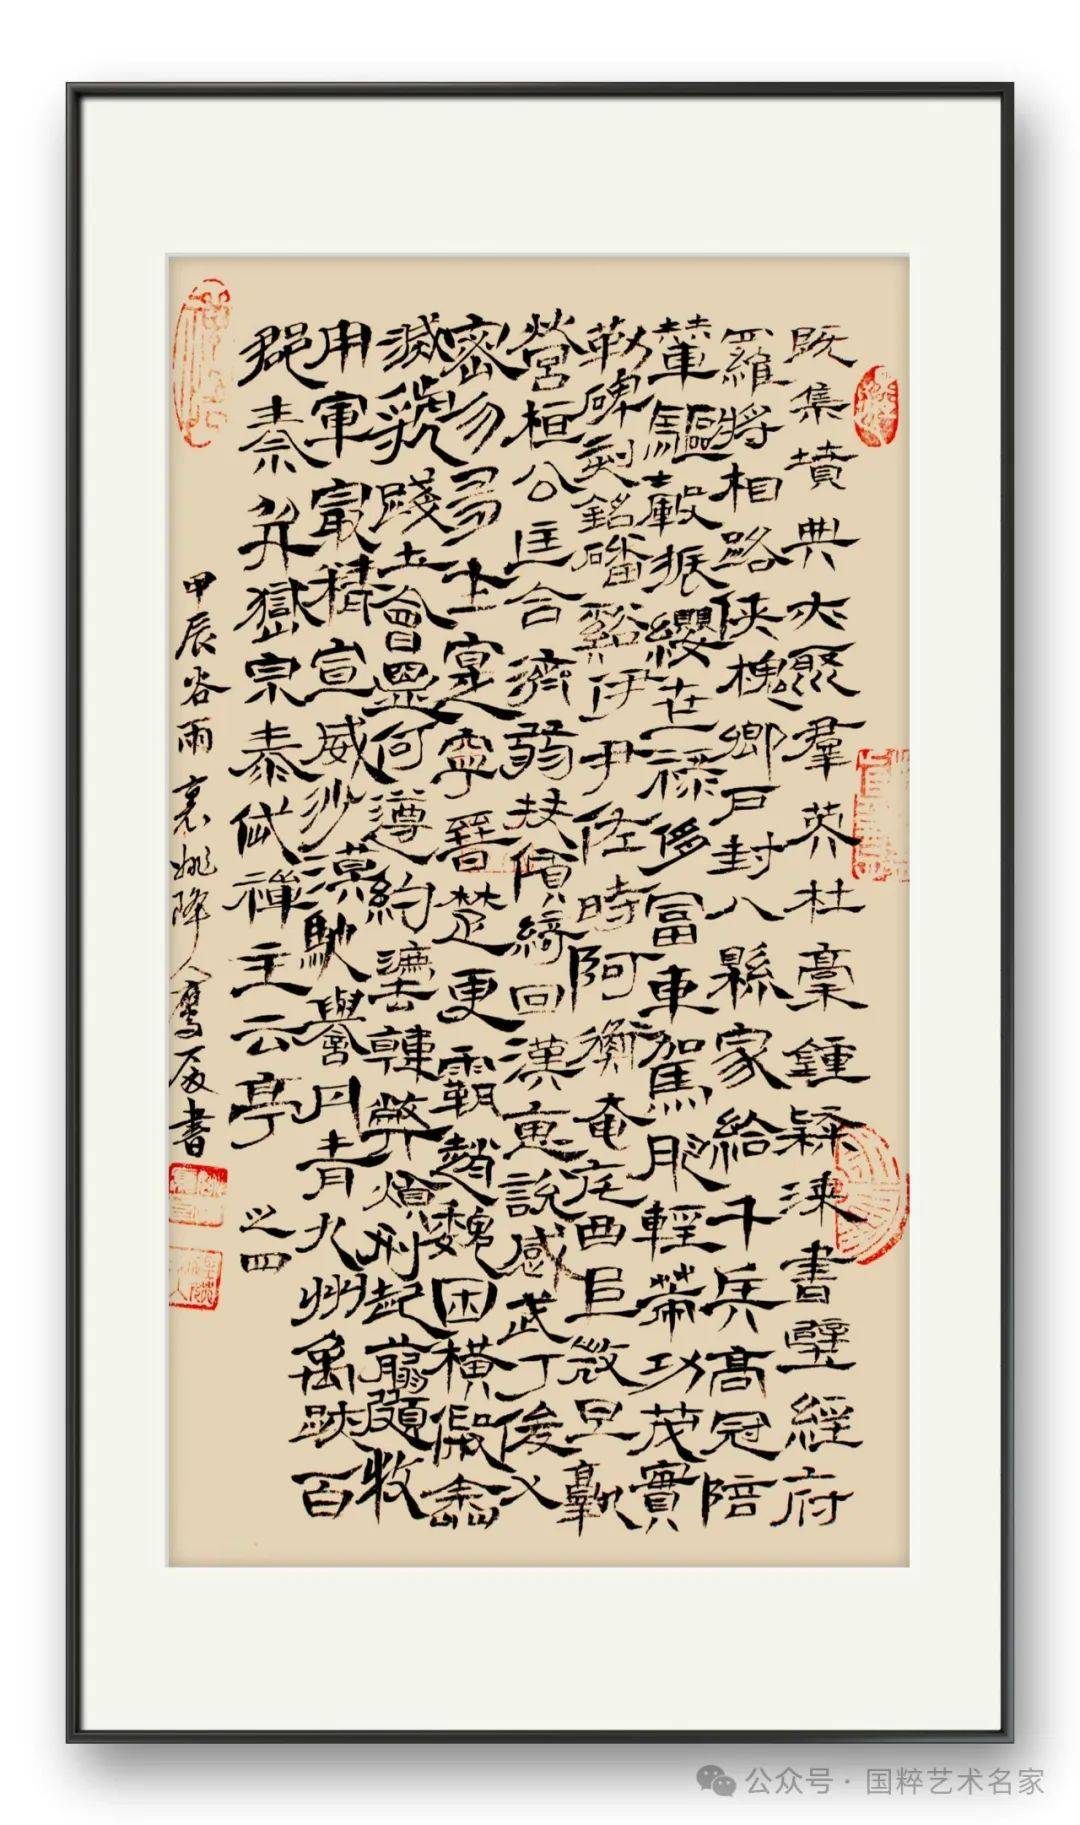 既集墳典亦聚羣英杜稾鍾隸漆書壁經府
羅將相路俠槐卿戶封八縣家給千兵高冠陪
輦驅轂振纓世祿侈富車駕肥輕策功茂實
勒碑刻銘磻谿伊尹佐時阿衡奄宅曲阜微旦孰
營桓公匡合濟弱扶傾綺回漢惠說感武丁俊乂
密勿多士寔寧晉楚更霸趙魏困橫假途
滅虢踐土會盟何遵約灋韓弊煩刑起翦頗牧
用軍最精宣威沙漠馳譽丹青九州禹跡百
郡秦并嶽宗泰岱禪主云亭 之四
甲辰谷雨 書
公众号 · 国粹艺术名家